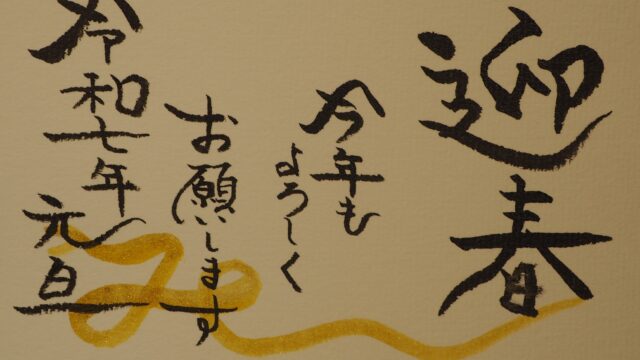 迎春
今年も
よろしく
お願いします
令和七年
元旦